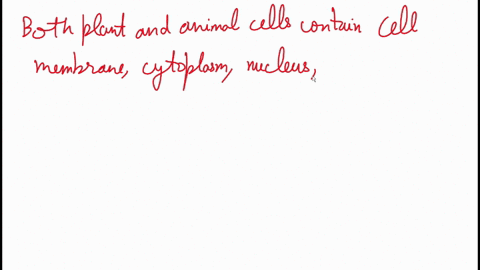 Both plant and animal cells contain cell
membrane, cytoplasm, nucleus,